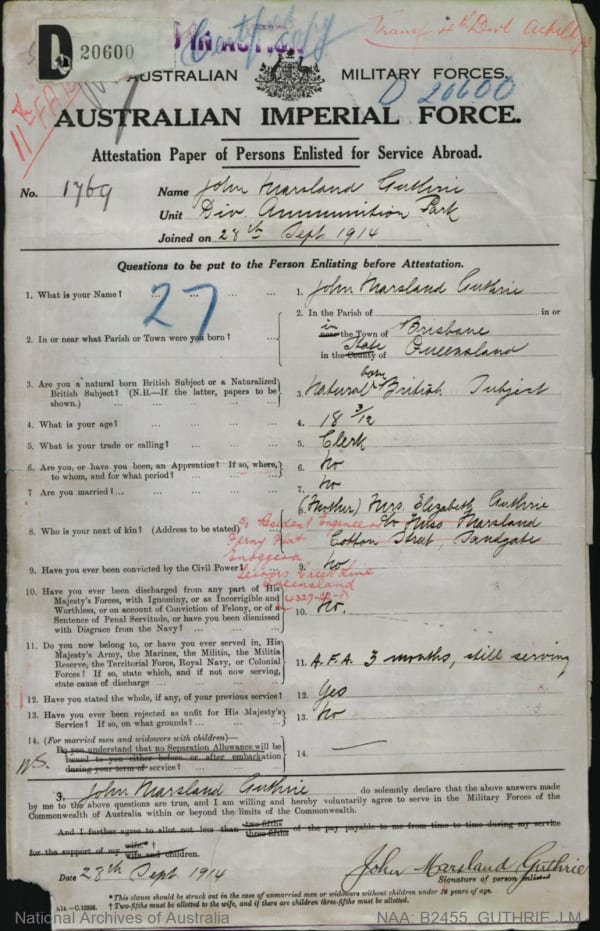 D 20600
D IN ACTION
Certif copy
Transf 4th Divl Artill
AUSTRALIAN MILITARY FORCES.
D 20600
11th FAB
AUSTRALIAN IMPERIAL FORCE.
Attestation Paper of Persons Enlisted for Service Abroad.
No. 1769 Name John Marsland Guthrie
Unit Div. Ammunition Park
Joined on 28th Sept 1914
Questions to be put to the Person Enlisting before Attestation.
27
1. What is your Name? ... ... ... ... 1. John Marsland Guthrie
2. In or near what Parish or Town were you born? ... 2. In the Parish of in or
in near the Town of Brisbane
in the State County of Queensland
3. Are you a natural born British Subject or a Naturalized
British Subject? (N.B.—If the latter, papers to be
shown.) ... ... ... ... 3. Natural born British Subject
4. What is your age? ... ... ... ... 4. 18 3/12
5. What is your trade or calling? ... ... ... 5. Clerk
6. Are you, or have you been, an Apprentice? If so, where,
to whom, and for what period? ... ... ... 6. No
7 Are you married? ... ... ... ... 7. No
8. Who is your next of kin? (Address to be stated) 8. (Mother) Mrs. Elizabeth Guthrie
C/o Miss Marsland
Cotton Street, Sandgate
c/o Resident Engineer
Ferny Flat
Enoggera
Terrors Creek Line
Queensland
9. Have you ever been convicted by the Civil Power? 9. No
10. Have you ever been discharged from any part of His
Majesty's Forces, with Ignominy, or as Incorrigible and
Worthless, or on account of Conviction of Felony, or of a
Sentence of Penal Servitude, or have you been dismissed
with Disgrace from the Navy? ... ... ... 10. No.
11. Do you now belong to, or have you ever served in, His
Majesty's Army, the Marines, the Militia, the Militia
Reserve, the Territorial Force, Royal Navy, or Colonial
Forces? If so, state which, and if not now serving,
state cause of discharge ... ... ... 11. A.F.A. 3 months, still serving
12. Have you stated the whole, if any, of your previous service? 12. Yes
13. Have you ever been rejected as unfit for His Majesty's
Service? If so, on what grounds? ... ... ... 13. No
14. (For married men and widowers with children)—
Do you understand that no Separation Allowance will be
issued to you either before or after embarkation
during your term of service? 14. —
I, John Marsland Guthrie do solemnly declare that the above answers made
by me to the above questions are true, and I am willing and hereby voluntarily agree to serve in the Military Forces of the
Commonwealth of Australia within or beyond the limits of the Commonwealth.
*And I further agree to allot not less than two-fifths three-fifths of the pay payable to me from time to time during my service
for the support of my wife. † wife and children.
Date 28th Sept 1914 John Marsland Guthrie
Signature of person enlisted
*This clause should be struck out in the case of unmarried men or widowers without children under 18 years of age.
† Two-fifths must be allotted to the wife, and if there are children three-fifths must be allotted.
National Archives of Australia NAA: B2455, GUTHRIE J M